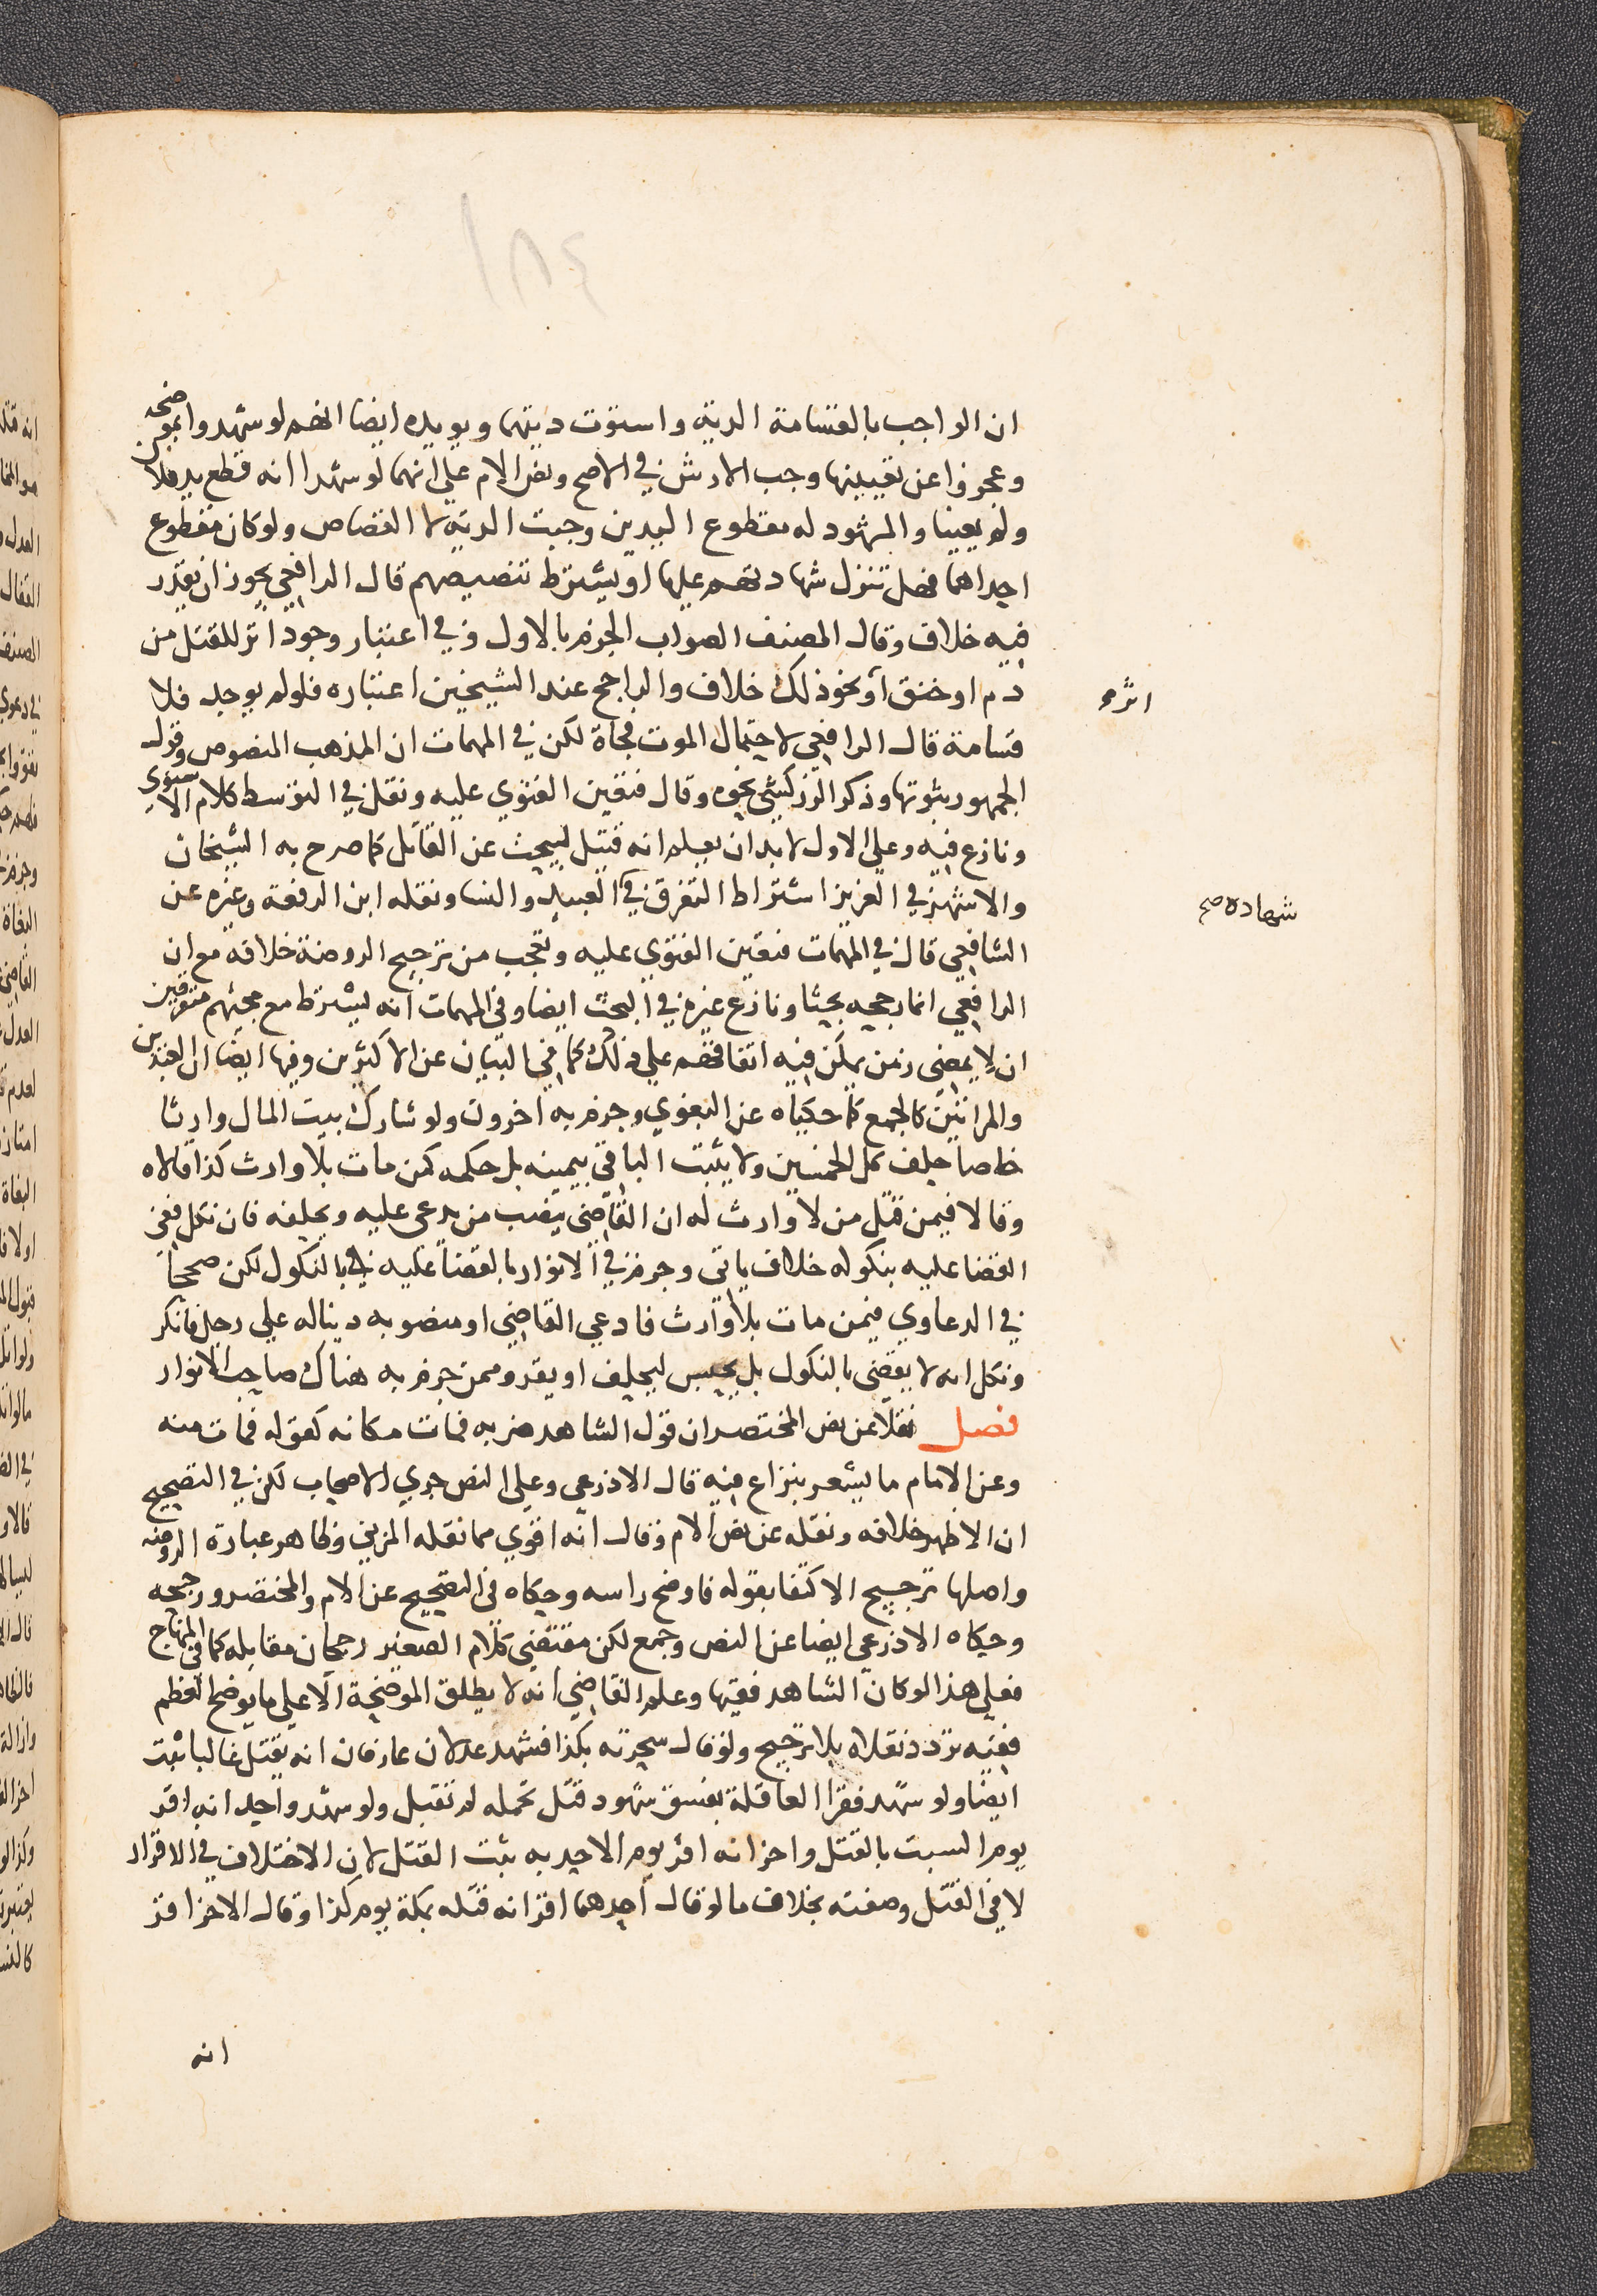 ١٨٤
ان الواجب بالقسامة الدية واستوت ديتها ويويده ايضا انهم لو شهدوا بموضحة
وعجزوا عن تعيينها وجب الارش في الاصح ونص الام علي انهما لو شهدا انه قطع يد فلان
ولم يعينا والمشهود له مقطوع اليدين وجبت الدية لا القصاص ولو كان مقطوع
احداهما فهل تنزل شهادتهم عليها او يشترط تنصيصهم قال الرافعي يجوز ان يقدر
فيه خلاف وقال المصنف الصواب الجزم بالاول وفي اعتبار وجود اثر للقتل من
دم او خنق او نحو ذلك خلاف والراجح عند الشيخين اعتباره فلو لم يوجد فلا
اثر
قسامة قال الرافعي لاحتمال الموت فجاة لكن في المهمات ان المذهب المنصوص وقول
الجمهور ثبوتها وذكر الزركشي نحوه وقال فتعين الفتوي عليه ونقل في التوسط كلام الاسنوي
ونازع فيه وعلي الاول لا بد ان يعلم انه قتيل ليبحث عن القاتل كما صرح به الشيخان
والاشهر في العزيز اشتراط التفرق في العبيد والنسا ونقله ابن الرفعة وغيره عن
شهاده صح
الشافعي قال في المهمات فتعين الفتوي عليه وتعجب من ترجيح الروضة خلافه مع ان
الرافعي انما رجحه بحثا ونازع غيره في البحث ايضا وفي المهمات انه يشترط مع مجيئهم متفرقين
ان لا يمضي زمن يمكن فيه اتفاقهم علي ذلك كما في البيان عن الاكثرين وفيها ايضا ان العبدين
والمراتين كالجمع كما حكياه عن البغوي وجزم به اخرون ولو شارك بيت المال وارثا
خاصا حلف كل الخمسين ولا يثبت الباقي بيمينه بل حكمه كمن مات بلا وارث كذا قالاه
وقالا فيمن قتل من لا وارث له ان القاضي ينصب من يدعي عليه ويحلفه فان نكل ففي
القضا عليه بنكوله خلاف ياتي وجزم في الانوار بالقضا عليه بالنكول لكن صححا
في الدعاوي فيمن مات بلا وارث فادعي القاضي او منصوبه دينا له علي رجل فانكر
ونكل انه لا يقضي بالنكول بل يحبس ليحلف او يقر وممن جزم به هناك صاحب الانوار
فصل نقلا عن نص المختصر ان قول الشاهد ضربه فمات مكانه كقوله فمات منه
وعن الامام ما يشعر بنزاع فيه قال الاذرعي وعلي النص جري الاصحاب لكن في التصحيح
ان الاظهر خلافه ونقله عن نص الام وقال انه اقوي مما نقله المزني وظاهر عبارة الروضة
واصلها ترجيح الاكتفا بقوله فاوضح راسه وحكاه في التصحيح عن الام والمختصر ورجحه
وحكاه الاذرعي ايضا عن النص وجمع لكن مقتضي كلام الصغير رجحان مقابله كما في المنهاج
فعلي هذا لو كان الشاهد فقيها وعلم القاضي انه لا يطلق الموضحة الا علي ما يوضح العظم
ففيه تردد نقلاه بلا ترجيح ولو قال سحرته بكذا فشهد عدلان عارفان انه يقتل غالبا ثبت
ايضا ولو شهد فقرا العاقلة بفسق شهود قتل تحمله لم تقبل ولو شهد واحد انه اقر
يوم السبت بالقتل واخر انه اقر يوم الاحد به ثبت القتل لان الاختلاف في الاقرار
لا في القتل وصفته بخلاف ما لو قال احدهما اقر انه قتله بمكة يوم كذا وقال الاخر اقر
انه